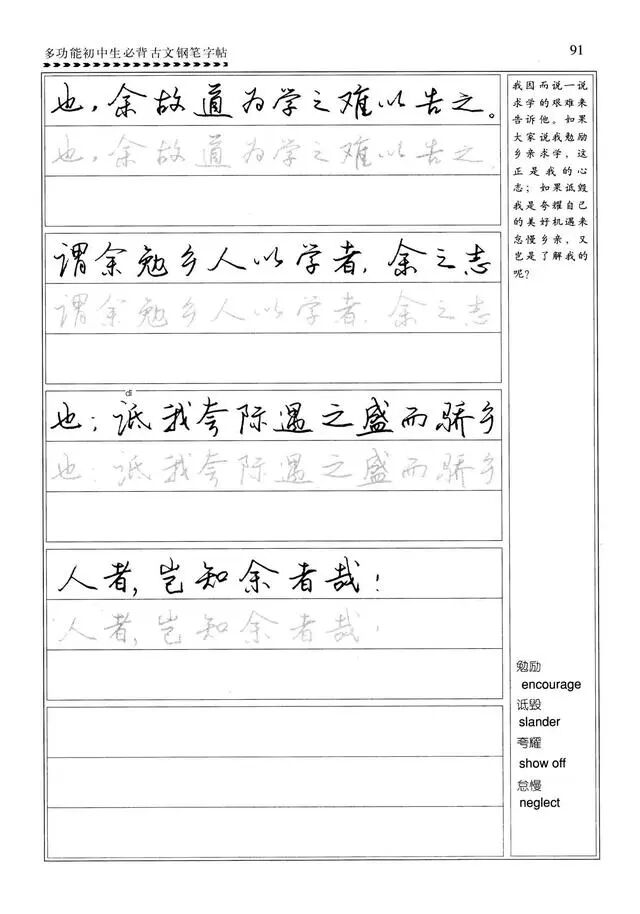 多功能初中生必背古文钢笔字帖
91
也，余故道为学之难以告之。
也，余故道为学之难以告之。
谓余勉乡人以学者，余之志
谓余勉乡人以学者，余之志
dǐ
也；诋我夸际遇之盛而骄乡
也；诋我夸际遇之盛而骄乡
人者，岂知余者哉！
人者，岂知余者哉！
我因而说一说
求学的艰难来
告诉他。如果
大家说我勉励
乡亲求学，这
正是我的心
志；如果诋毁
我是夸耀自己
的美好机遇来
怠慢乡亲，又
岂是了解我的
呢？
勉励
encourage
诋毁
slander
夸耀
show off
怠慢
neglect